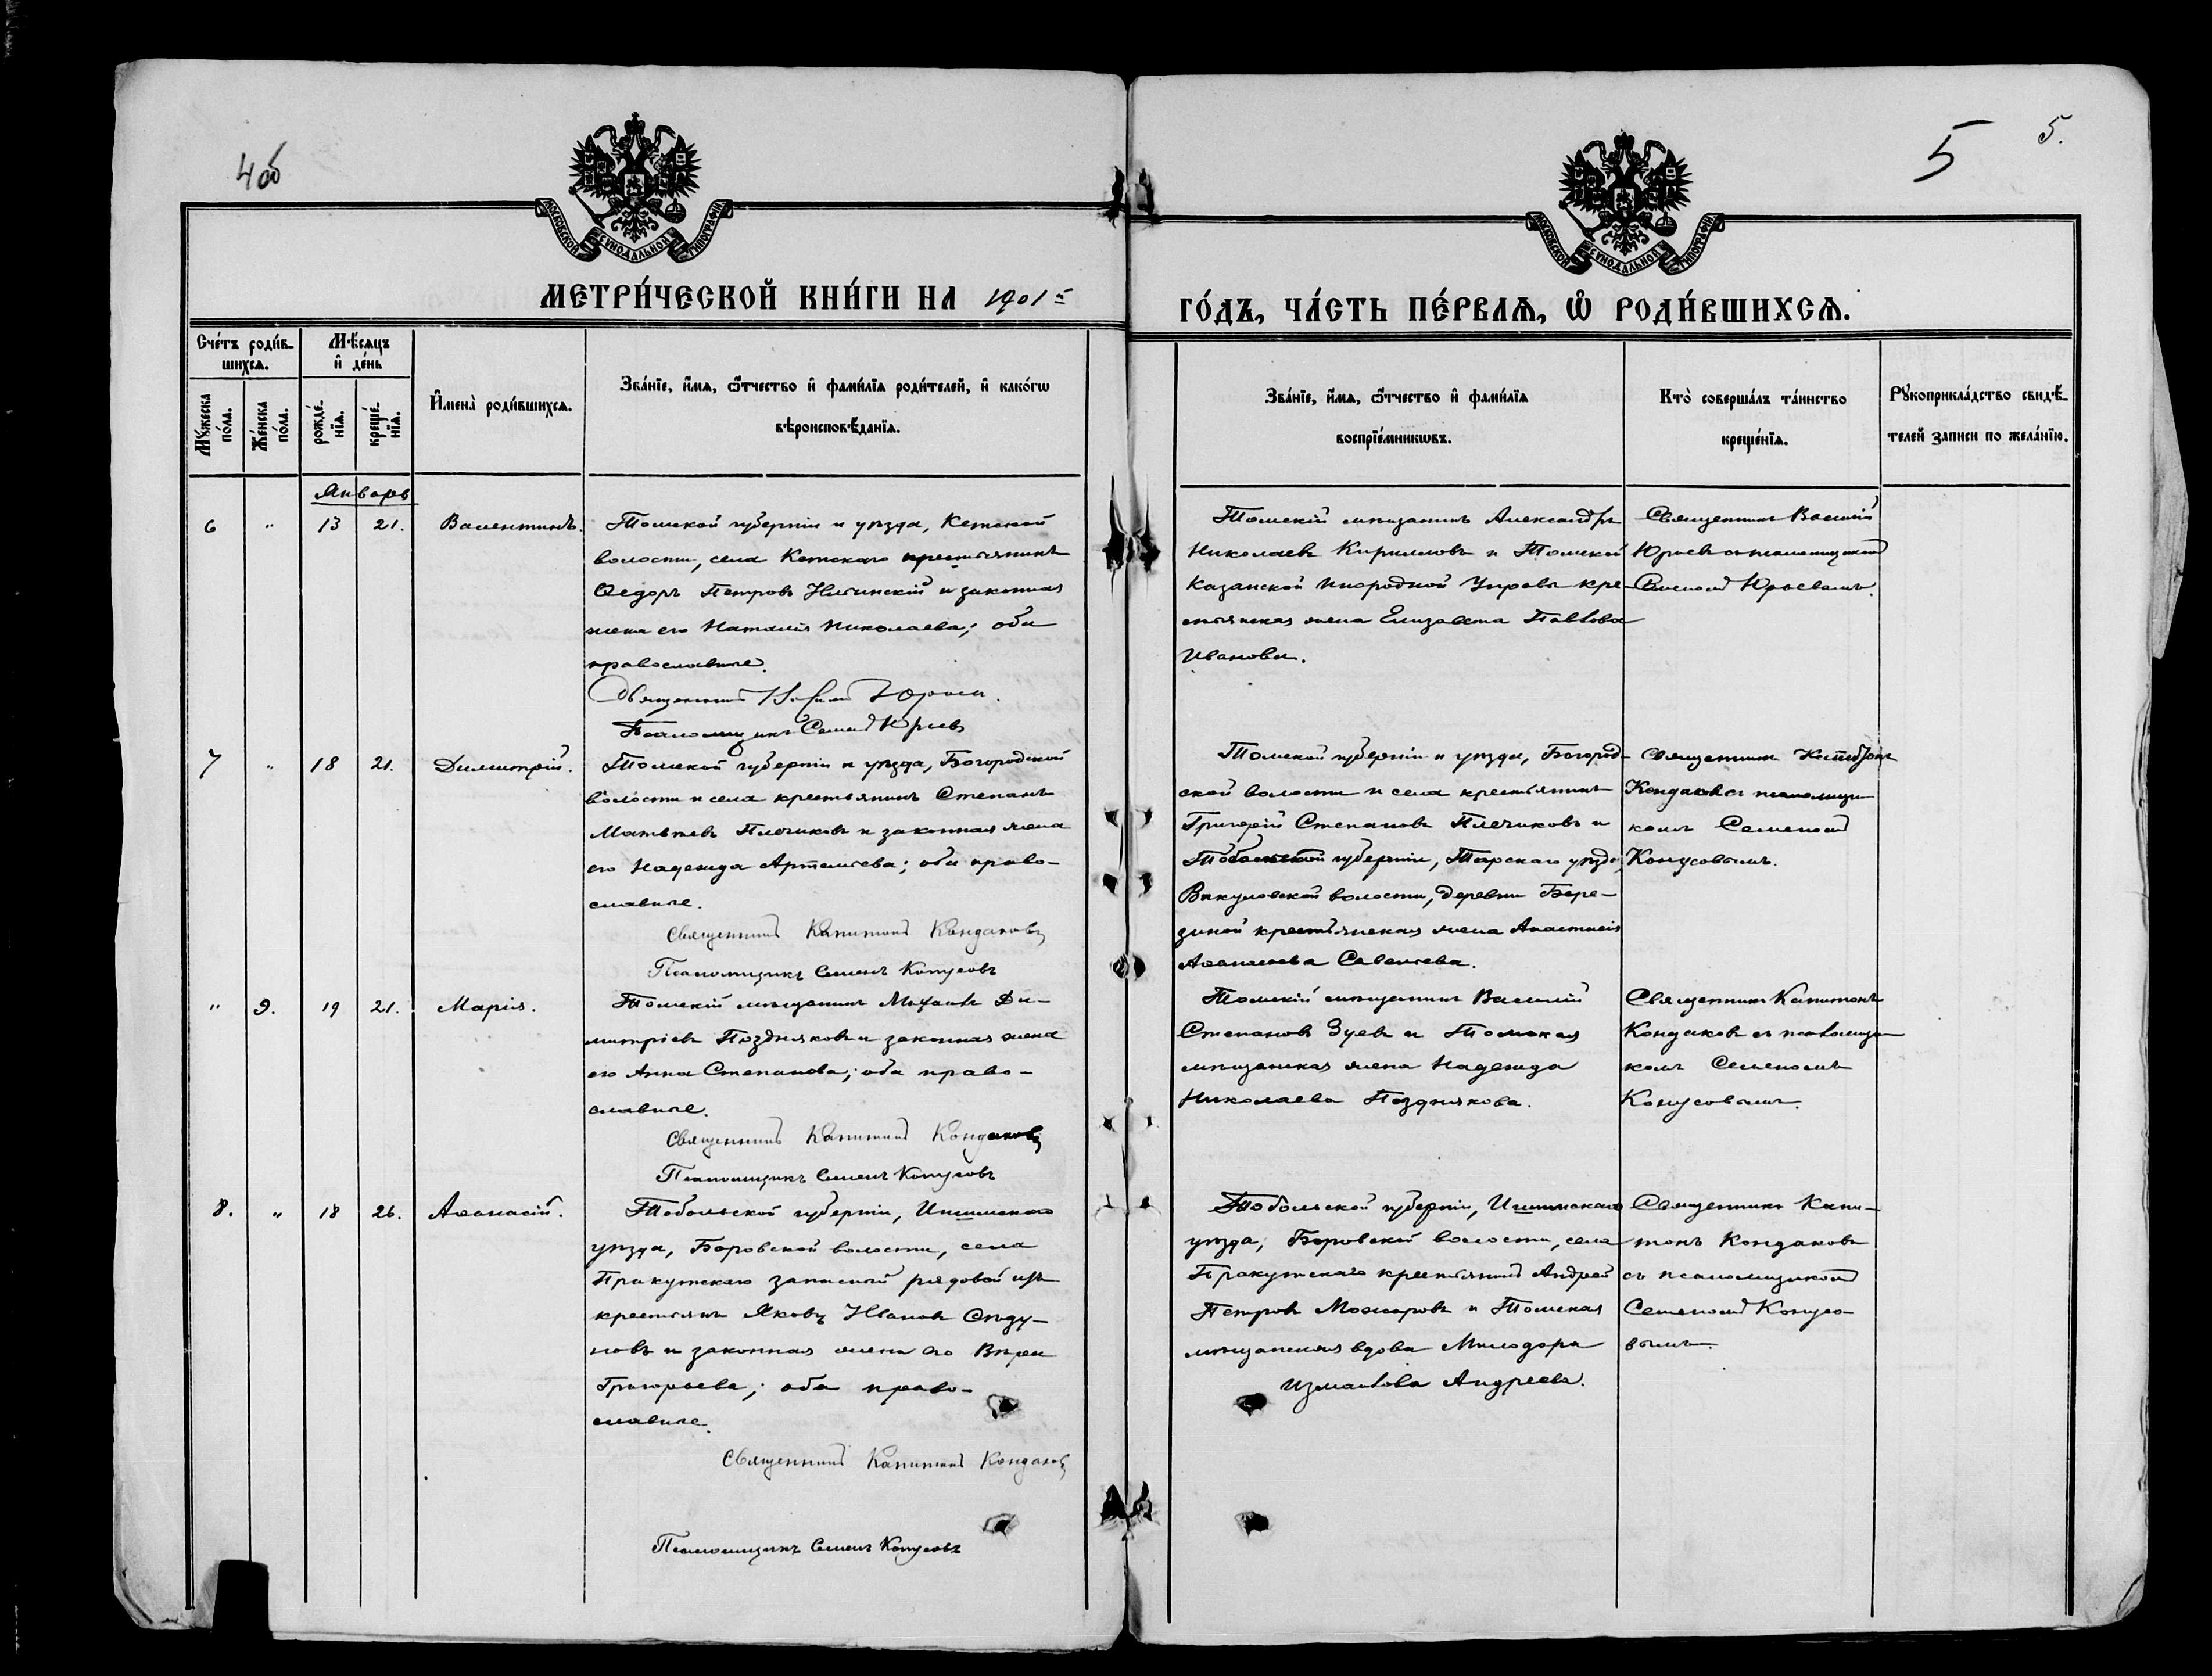 4об
5 5.
МОСКОВСКОЙ СѴНОДАЛЬНОЙ ТИПОГРАФІИ
МОСКОВСКОЙ СѴНОДАЛЬНОЙ ТИПОГРАФІИ
МЕТРИ́ЧЕСКОЙ КНИ́ГИ НА 1901 ГО́ДЪ, ЧА́СТЬ ПЕ́РВАѦ, Ѡ РОДИ́ВШИХСѦ.
Сче́тъ роди́в-
шихсѧ.
Мѣ́сяцъ
и де́нь
Мꙋ́жеска
по́ла.
Же́нска
по́ла.
рожде́-
нїѧ.
креще́-
нїѧ.
Имена̀ роди́вшихсѧ.
Зва́нїе, и́мѧ, ѻ́тчество и фами́лїѧ роди́телей, и како́гѡ
вѣроисповѣ́данїѧ.
Зва́нїе, и́мѧ, ѻ́тчество и фами́лїѧ
воспрїе́мникѡвъ.
Кто̀ соверша́лъ та́инство
креще́нїѧ.
Рꙋкоприкла́дство свидѣ́-
телей записи по жела́нїю.
Январь
6 " 13 21. Валентинъ.
Томской губерніи и уѣзда, Кетской
волости, села Кетскаго крестьянинъ
Ѳедоръ Петровъ и законная
жена его Наталія Николаева; оба
православные.
Священникъ Юрьевъ
Псаломщикъ Юрьевъ
Томскій мѣщанинъ Александръ
Николаевъ Кирилловъ и Томской
Казанской инородной Управы кре-
стьянская жена Елизавета Павлова
Иванова.
Священникъ Василій
Юрьевъ съ псаломщикомъ
Юрьевымъ.
7 " 18 21. Димитрій.
Томской губерніи и уѣзда, Богородской
волости и села крестьянинъ Степанъ
Матвѣевъ Плечиковъ и законная жена
его Надежда Артемьева; оба право-
славные.
Священникъ Капитонъ Кондаковъ
Псаломщикъ Семенъ Конусовъ
Томской губерніи и уѣзда, Богород-
ской волости и села крестьянинъ
Григорій Степановъ Плечиковъ и
Тобольской губерніи, Тарскаго уѣзда,
Викуловской волости, деревни Бере-
зиной крестьянская жена Анастасія
Аѳанасьева Савельева.
Священникъ Капитонъ
Кондаковъ съ псаломщи-
комъ Семеномъ
Конусовымъ.
" 9. 19 21. Марія.
Томскій мѣщанинъ Михаилъ Ди-
митріевъ Поздняковъ и законная жена
его Анна Степанова; оба право-
славные.
Священникъ Капитонъ Кондаковъ
Псаломщикъ Семенъ Конусовъ
Томскій мѣщанинъ Василій
Степановъ Зуевъ и Томская
мѣщанская жена Надежда
Николаева Позднякова.
Священникъ Капитонъ
Кондаковъ съ псаломщи-
комъ Семеномъ
Конусовымъ.
8. " 18 26. Аѳанасій.
Тобольской губерніи, Ишимскаго
уѣзда, Боровской волости, села
Пракутскаго запасный рядовой изъ
крестьянъ Яковъ Ивановъ Сѣду-
новъ и законная жена его Вѣра
Григорьева; оба право-
славные.
Священникъ Капитонъ Кондаковъ
Псаломщикъ Семенъ Конусовъ
Тобольской губерніи, Ишимскаго
уѣзда, Боровской волости, села
Пракутскаго крестьянинъ Андрей
Петровъ и Томская
мѣщанская вдова Милодора
Измаилова Андреева.
Священникъ Капи-
тонъ Кондаковъ
съ псаломщикомъ
Семеномъ Конусо-
вымъ.